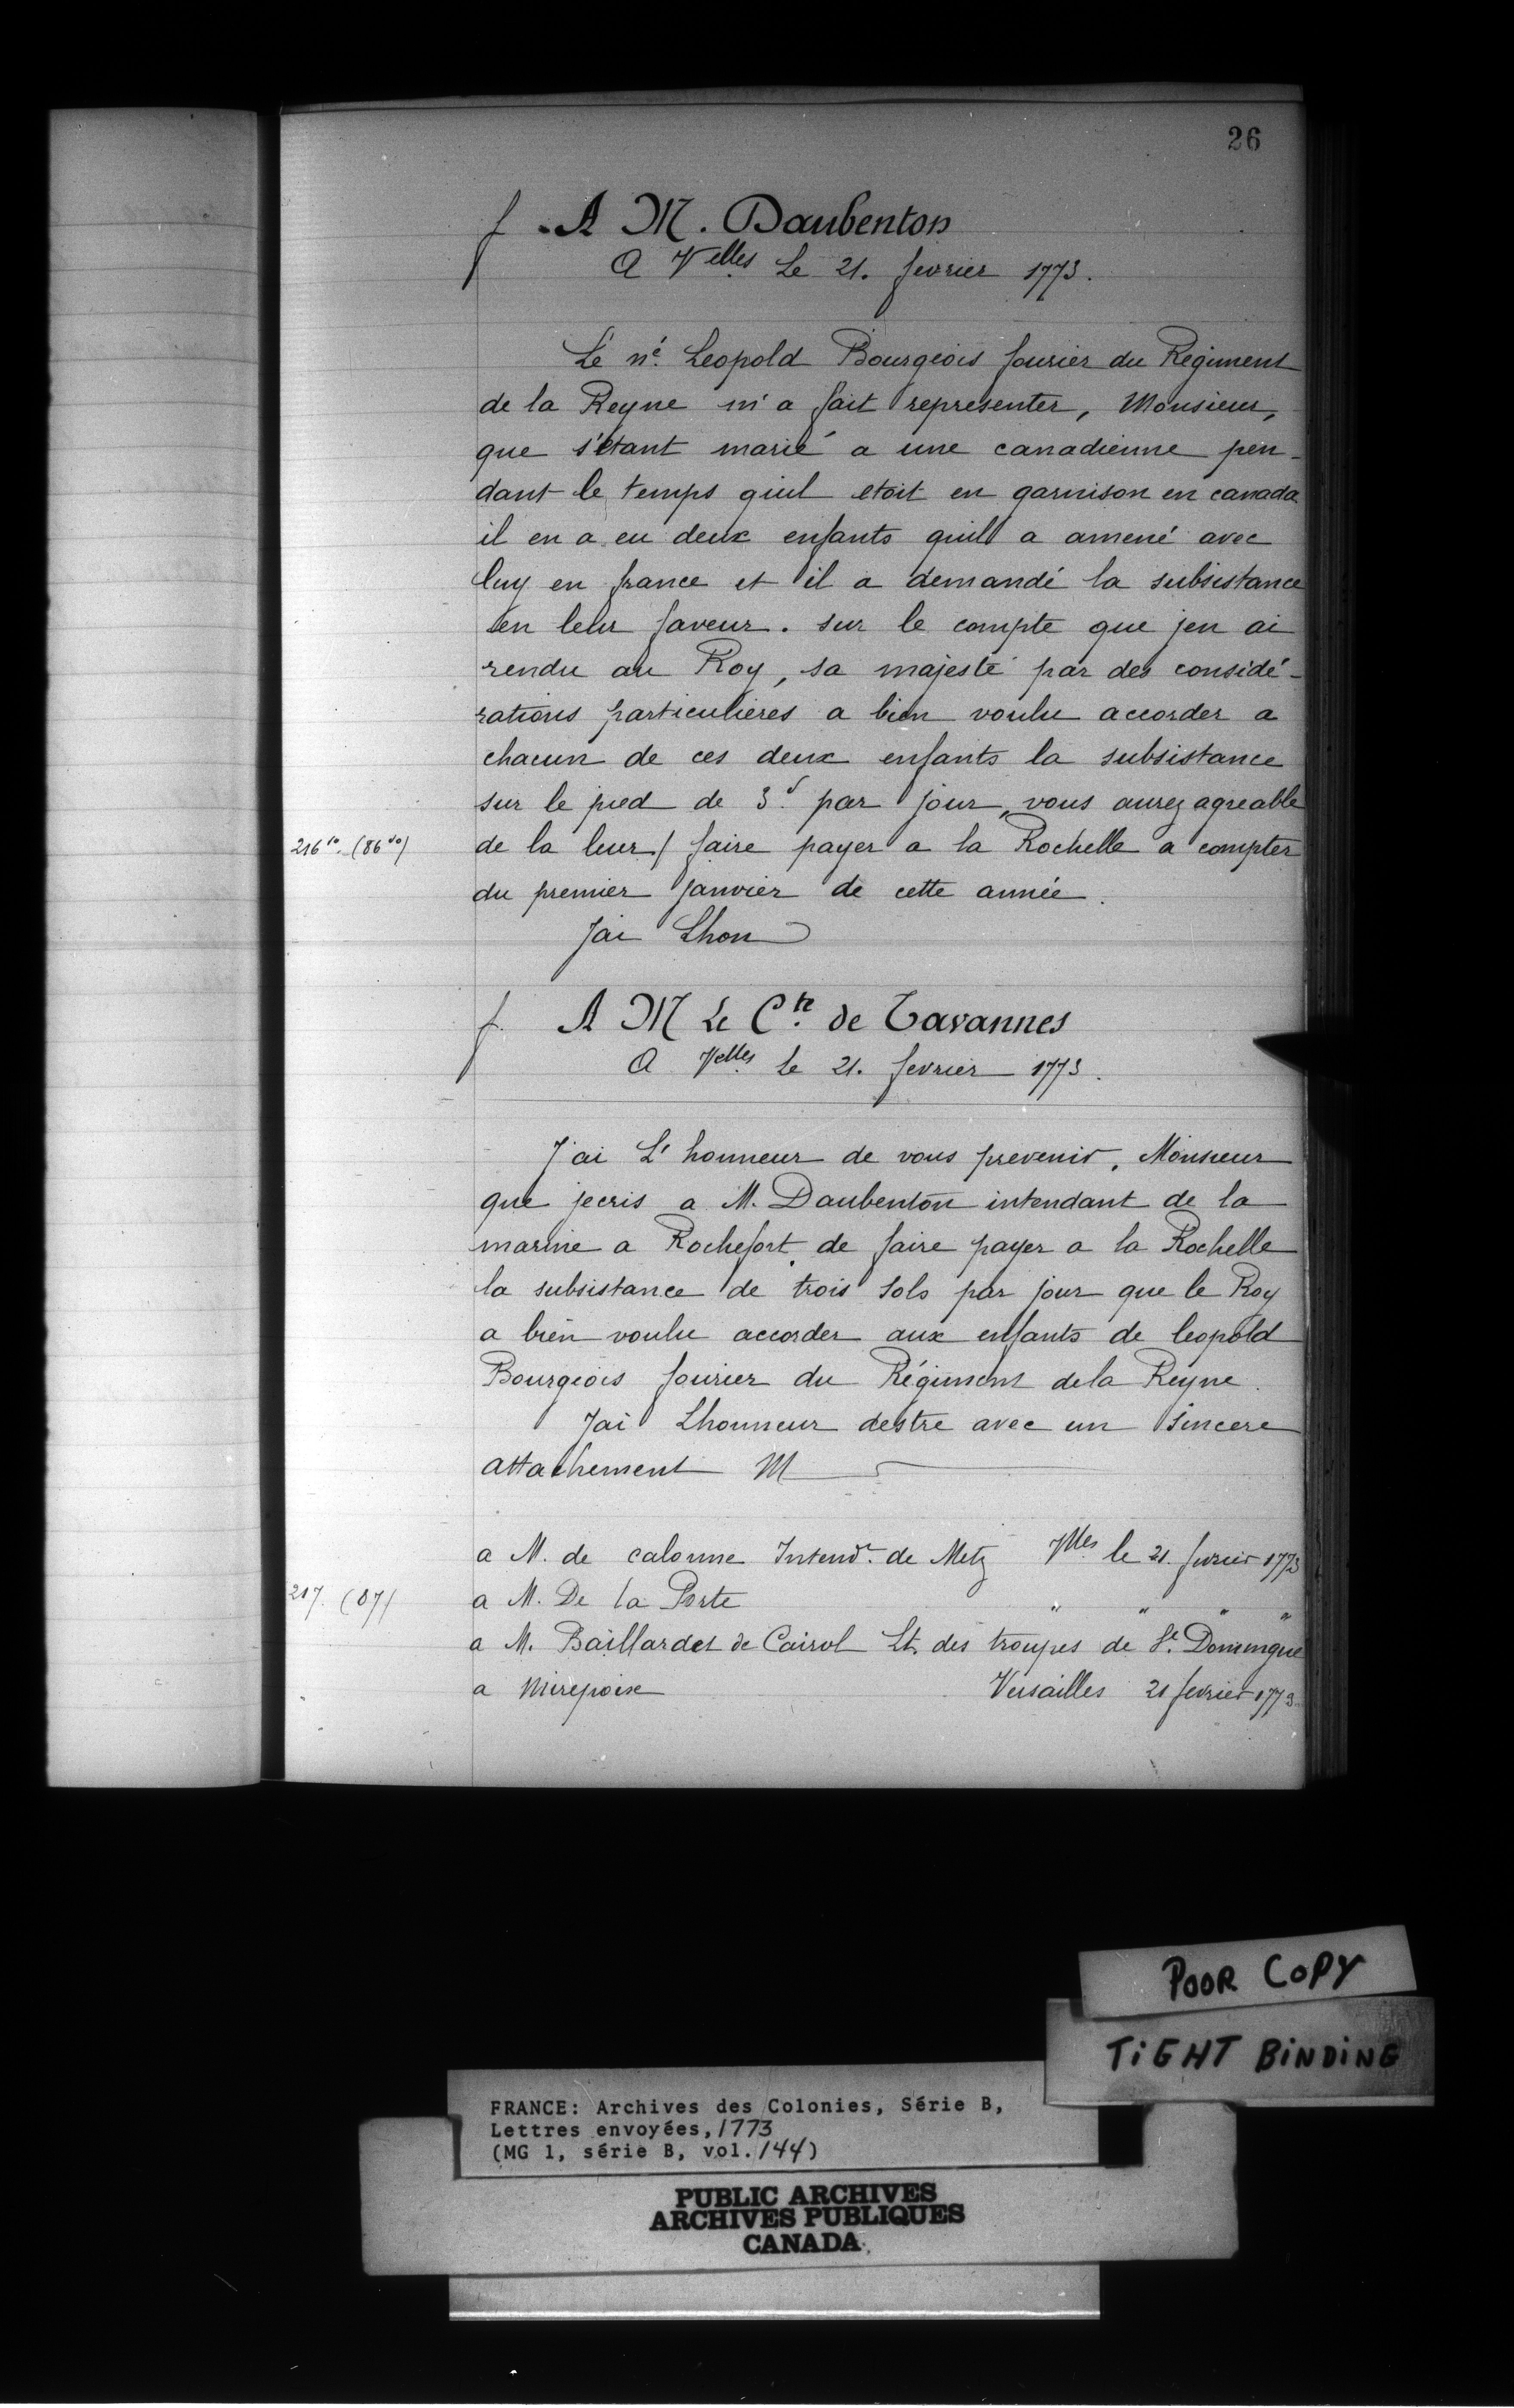 26
f. A M. Daubenton
A Velles Le 21. fevrier 1773.
Le né. Leopold Bourgeois fourier du Regiment
de la Reyne m'a fait representer, Monsieur,
que s'étant marié a une canadienne pen-
dant le temps quil etoit en garnison en canada
il en a eu deux enfants quil a amené avec
luy en france et il a demandé la subsistance
en leur faveur. sur le compte que jen ai
rendu au Roy, sa majesté par des considé-
rations particulieres a bien voulu accorder a
chacun de ces deux enfants la subsistance
sur le pied de 3s. par jour, vous aurez agreable
216vo. (86vo) de la leur / faire payer a la Rochelle a compter
du premier janvier de cette année.
Jai Lhon
f. A M Le Cte. de Tavannes
A Velles le 21. fevrier 1773.
J'ai L'honneur de vous prevenir, Monsieur
que jecris a M. Daubenton intendant de la
marine a Rochefort, de faire payer a la Rochelle
la subsistance de trois sols par jour que le Roy
a bien voulu accorder aux enfants de leopold
Bourgeois fourier du Régiment dela Reyne.
Jai Lhonneur destre avec un sincere
attachement M
a M. de calonne Intendt. de Metz Vlles le 21. fevrier 1773
217. (87) a M. De la Porte " " " "
a M. Baillardet de Cairol Lt. des troupes de St. Domingue
a Mirepoix Versailles 21 fevrier 1773.
POOR COPY
TiGHT BiNDiNG
FRANCE: Archives des Colonies, Série B,
Lettres envoyées, 1773
(MG 1, série B, vol. 144)
PUBLIC ARCHIVES
ARCHIVES PUBLIQUES
CANADA